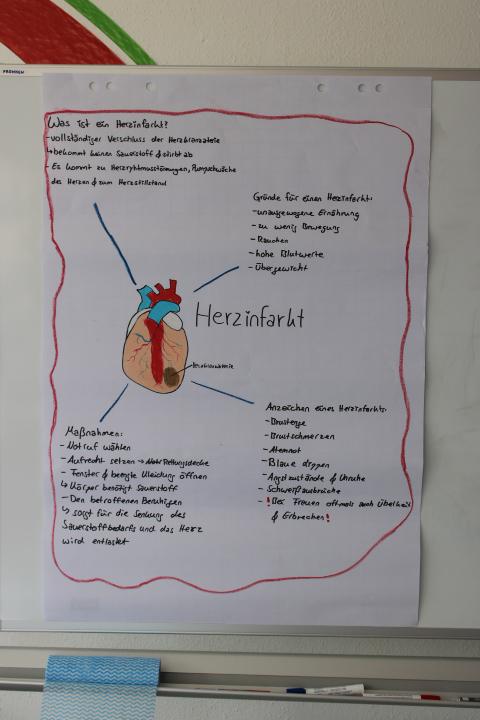 Was ist ein Herzinfarkt?
-vollständiger Verschluss der Herzkranzaterie
↳bekommt keinen Sauerstoff & stirbt ab
-Es kommt zu Herzrhythmusstörungen, Pumpschwäche
des Herzen & zum Herzstillstand
Gründe für einen Herzinfarkt:
-unausgewogene Ernährung
-zu wenig Bewegung
-Rauchen
-hohe Blutwerte
-Übergewicht
Herzinfarkt
Maßnahmen:
-Notruf wählen
-Aufrecht setzen → Rettungsdecke
-Fenster & beengte Kleidung öffnen
↳ Körper benötigt Sauerstoff
-Den betroffenen Beruhigen
↳ sorgt für die Senkung des
Sauerstoffbedarfs und das Herz
wird entlastet
Anzeichen eines Herzinfarkts:
-Brustenge
-Brustschmerzen
-Atemnot
-Blaue Lippen
-Angstzustände & Unruhe
-Schweißausbrüche
-!Bei Frauen oftmals auch Übelkeit
& Erbrechen!